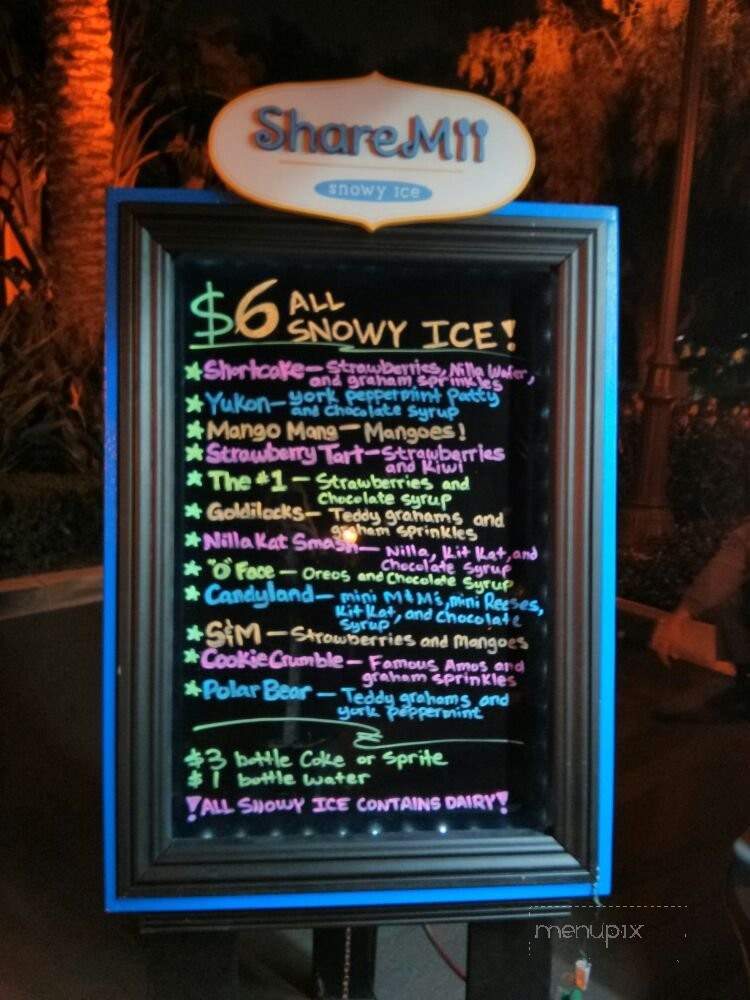 ShareMii
snowy ice
$6 ALL
SNOWY ICE!
Shortcake - Strawberries, Nilla Wafer,
and graham sprinkles
Yukon - york peppermint Patty
and chocolate syrup
Mango Mang - Mangoes!
Strawberry Tart - Strawberries
and Kiwi
The #1 - Strawberries and
Chocolate syrup
Goldilocks - Teddy grahams and
graham sprinkles
Nilla Kat Smash - Nilla, Kit Kat, and
Chocolate Syrup
"O" Face - Oreos and Chocolate Syrup
Candyland - mini M&M's, mini Reeses,
Kit Kat, and Chocolate
Syrup
S&M - Strawberries and Mangoes
Cookie Crumble - Famous Amos and
graham sprinkles
Polar Bear - Teddy grahams and
york peppermint
$3 bottle Coke or Sprite
$1 bottle water
!ALL SNOWY ICE CONTAINS DAIRY!
menupix